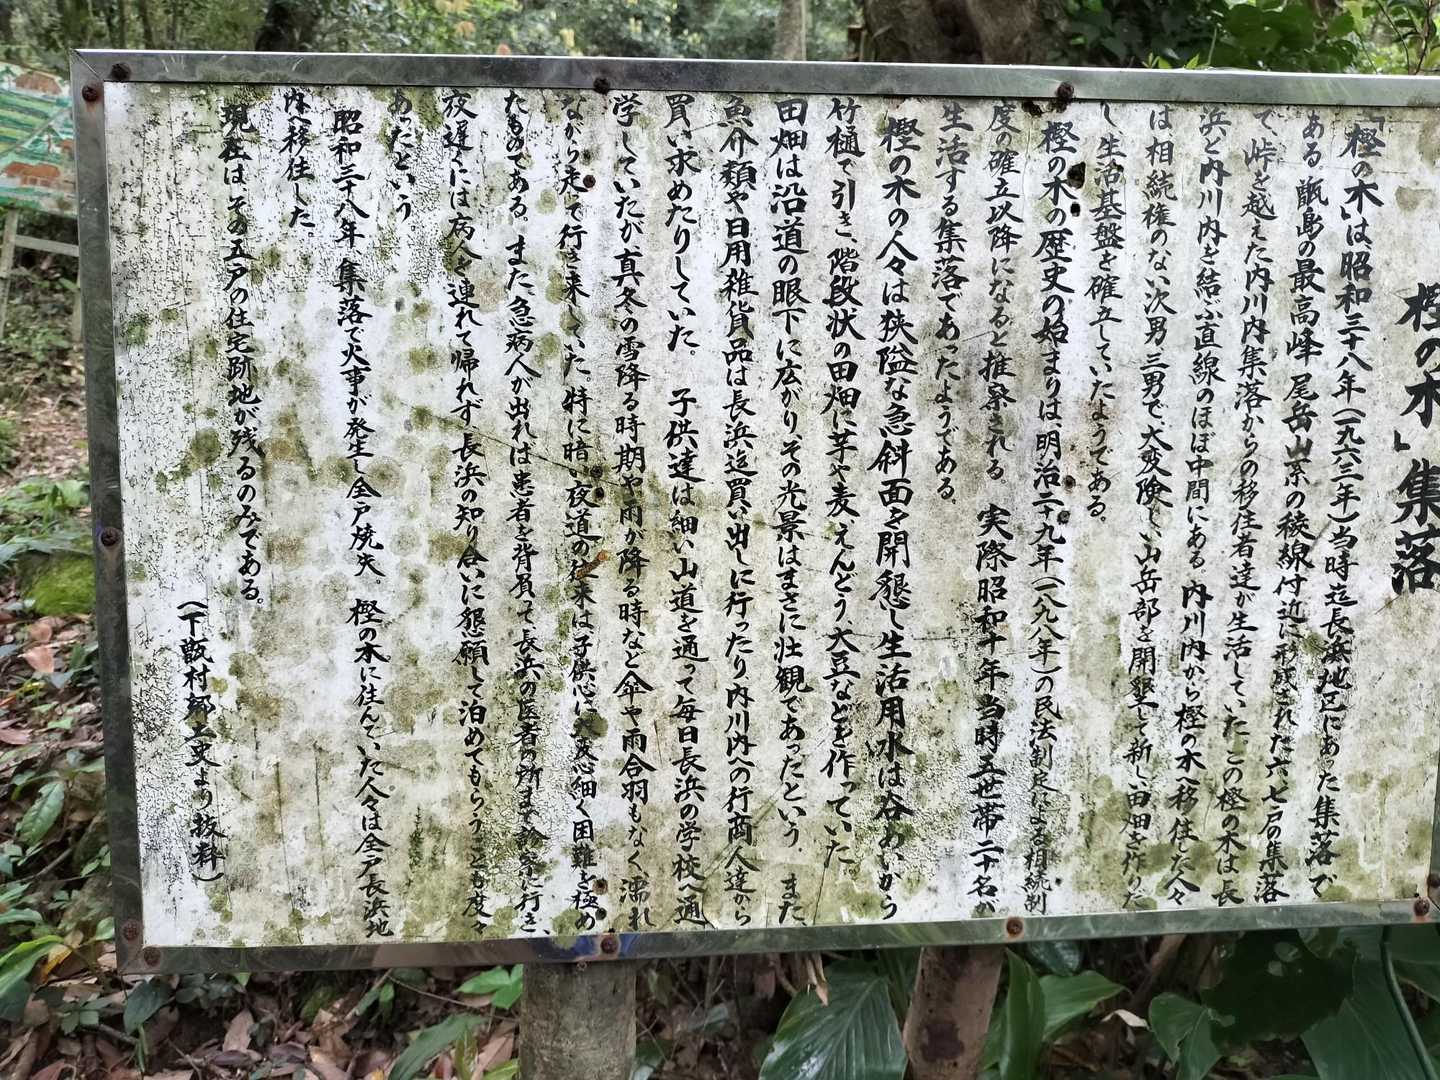 「樫の木」集落
「樫の木」は昭和三十八年(一九六三年)当時迄長浜地区にあった集落で
ある 甑島の最高峰 尾岳山系の稜線付近に形成された六、七戸の集落
で、峠を越えた内川内集落からの移住者達が生活していた この樫の木は長
浜と内川内を結ぶ直線のほぼ中間にある。内川内から樫の木へ移住した人々
は相続権のない次男 三男で、大変険しい山岳部を開墾して新しい田畑を作りた
し、生活基盤を確立していたようである。
樫の木の歴史の始まりは、明治二十九年(一八九八年)の民法制定による相続制
度の確立以降になると推察される 実際昭和十年当時五世帯二十名が
生活する集落であったようである。
樫の木の人々は狭隘な急斜面を開懇し生活用水は谷あいから
竹樋で引き、階段状の田畑に芋や麦 えんどう、大豆などを作っていた
田畑は沿道の眼下に広がり、その光景はまさに壮観であったという。また、
魚介類や日用雑貨品は長浜迄買い出しに行ったり内川内への行商人達から
買い求めたりしていた。 子供達は細い山道を通って毎日長浜の学校へ通
学していたが、真冬の雪降る時期や雨が降る時など傘や雨合羽もなく、濡れ
ながら走って行き来していた。特に暗い夜道の往来は子供心に大変心細く困難を極め
たものである。また、急病人が出れば患者を背負って、長浜の医者の所まで診察に行き、
夜遅くには病人を連れて帰れず 長浜の知り合いに懇願して泊めてもらうことも度々
あったという
昭和三十八年、集落で火事が発生し全戸焼失。 樫の木に住んでいた人々は全戸長浜地
内へ移住した。
現在は、その五戸の住宅跡地が残るのみである。
(下甑村郷土史より抜粋)